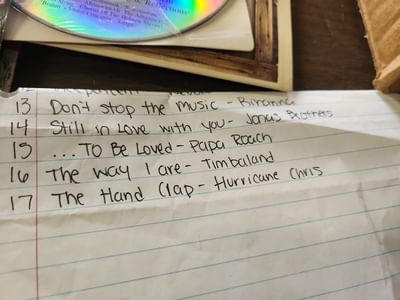 13 Don't stop the music - Rihanna
14 Still in Love with you - Jonas Brothers
15 ...To Be Loved - Papa Roach
16 The way I are - Timbaland
17 The Hand Clap - Hurricane Chris